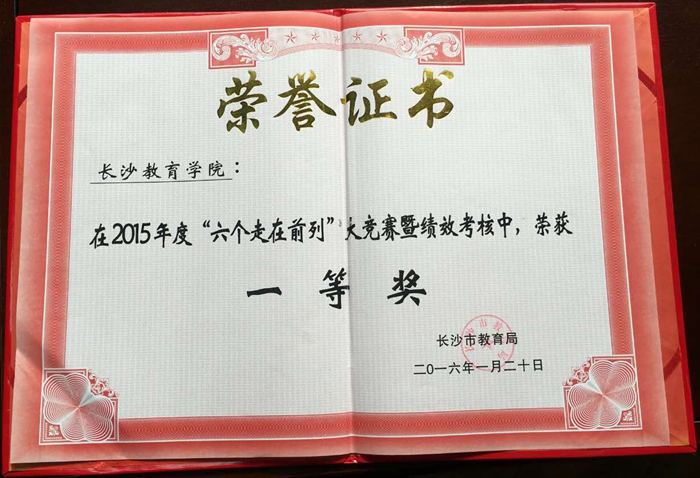 荣誉证书
长沙教育学院：
在2015年度“六个走在前列”大竞赛暨绩效考核中，荣获
一等奖
长沙市教育局
二0一六年一月二十日